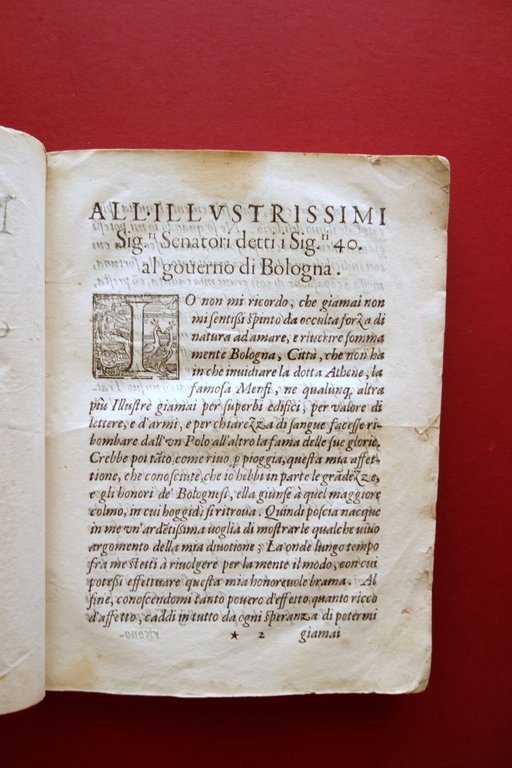 ALL'ILLVSTRISSIMI
Sig.ri Senatori detti i Sig.ri 40.
al gouerno di Bologna.
IO non mi ricordo, che giamai non
mi sentißi spinto da occulta forza di
natura ad amare, e riuerire somma
mente Bologna, Città, che non ha
in che inuidiare la dotta Athene, la
famosa Menfi, ne qualunq, altra
più Illustre giamai per superbi edifici, per valore di
lettere, e d'armi, e per chiarezza di sangue facesse ri-
bombare dall'vn Polo all'altro la fama delle sue glorie.
Crebbe poi tãto, come riuo p pioggia, questa mia affet-
tione, che conosciute, che io hebbi in parte le grãdezze,
e gli honori de' Bolognesi, ella giunse à quel maggiore
colmo, in cui hoggidì si ritroua: Quindi poscia nacque
in me vn'ardẽtißima uoglia di mostrarle qualche uiuo
argomento della mia diuotione; La onde lungo tempo
fra me steßi à riuolgere per la mente il modo, con cui
poteßi effettuare questa mia honoreuole brama. Al
fine, conoscendomi tanto pouero d'effetto, quanto ricco
d'affetto, caddi in tutto da ogni speranza di potermi
* 2 giamai